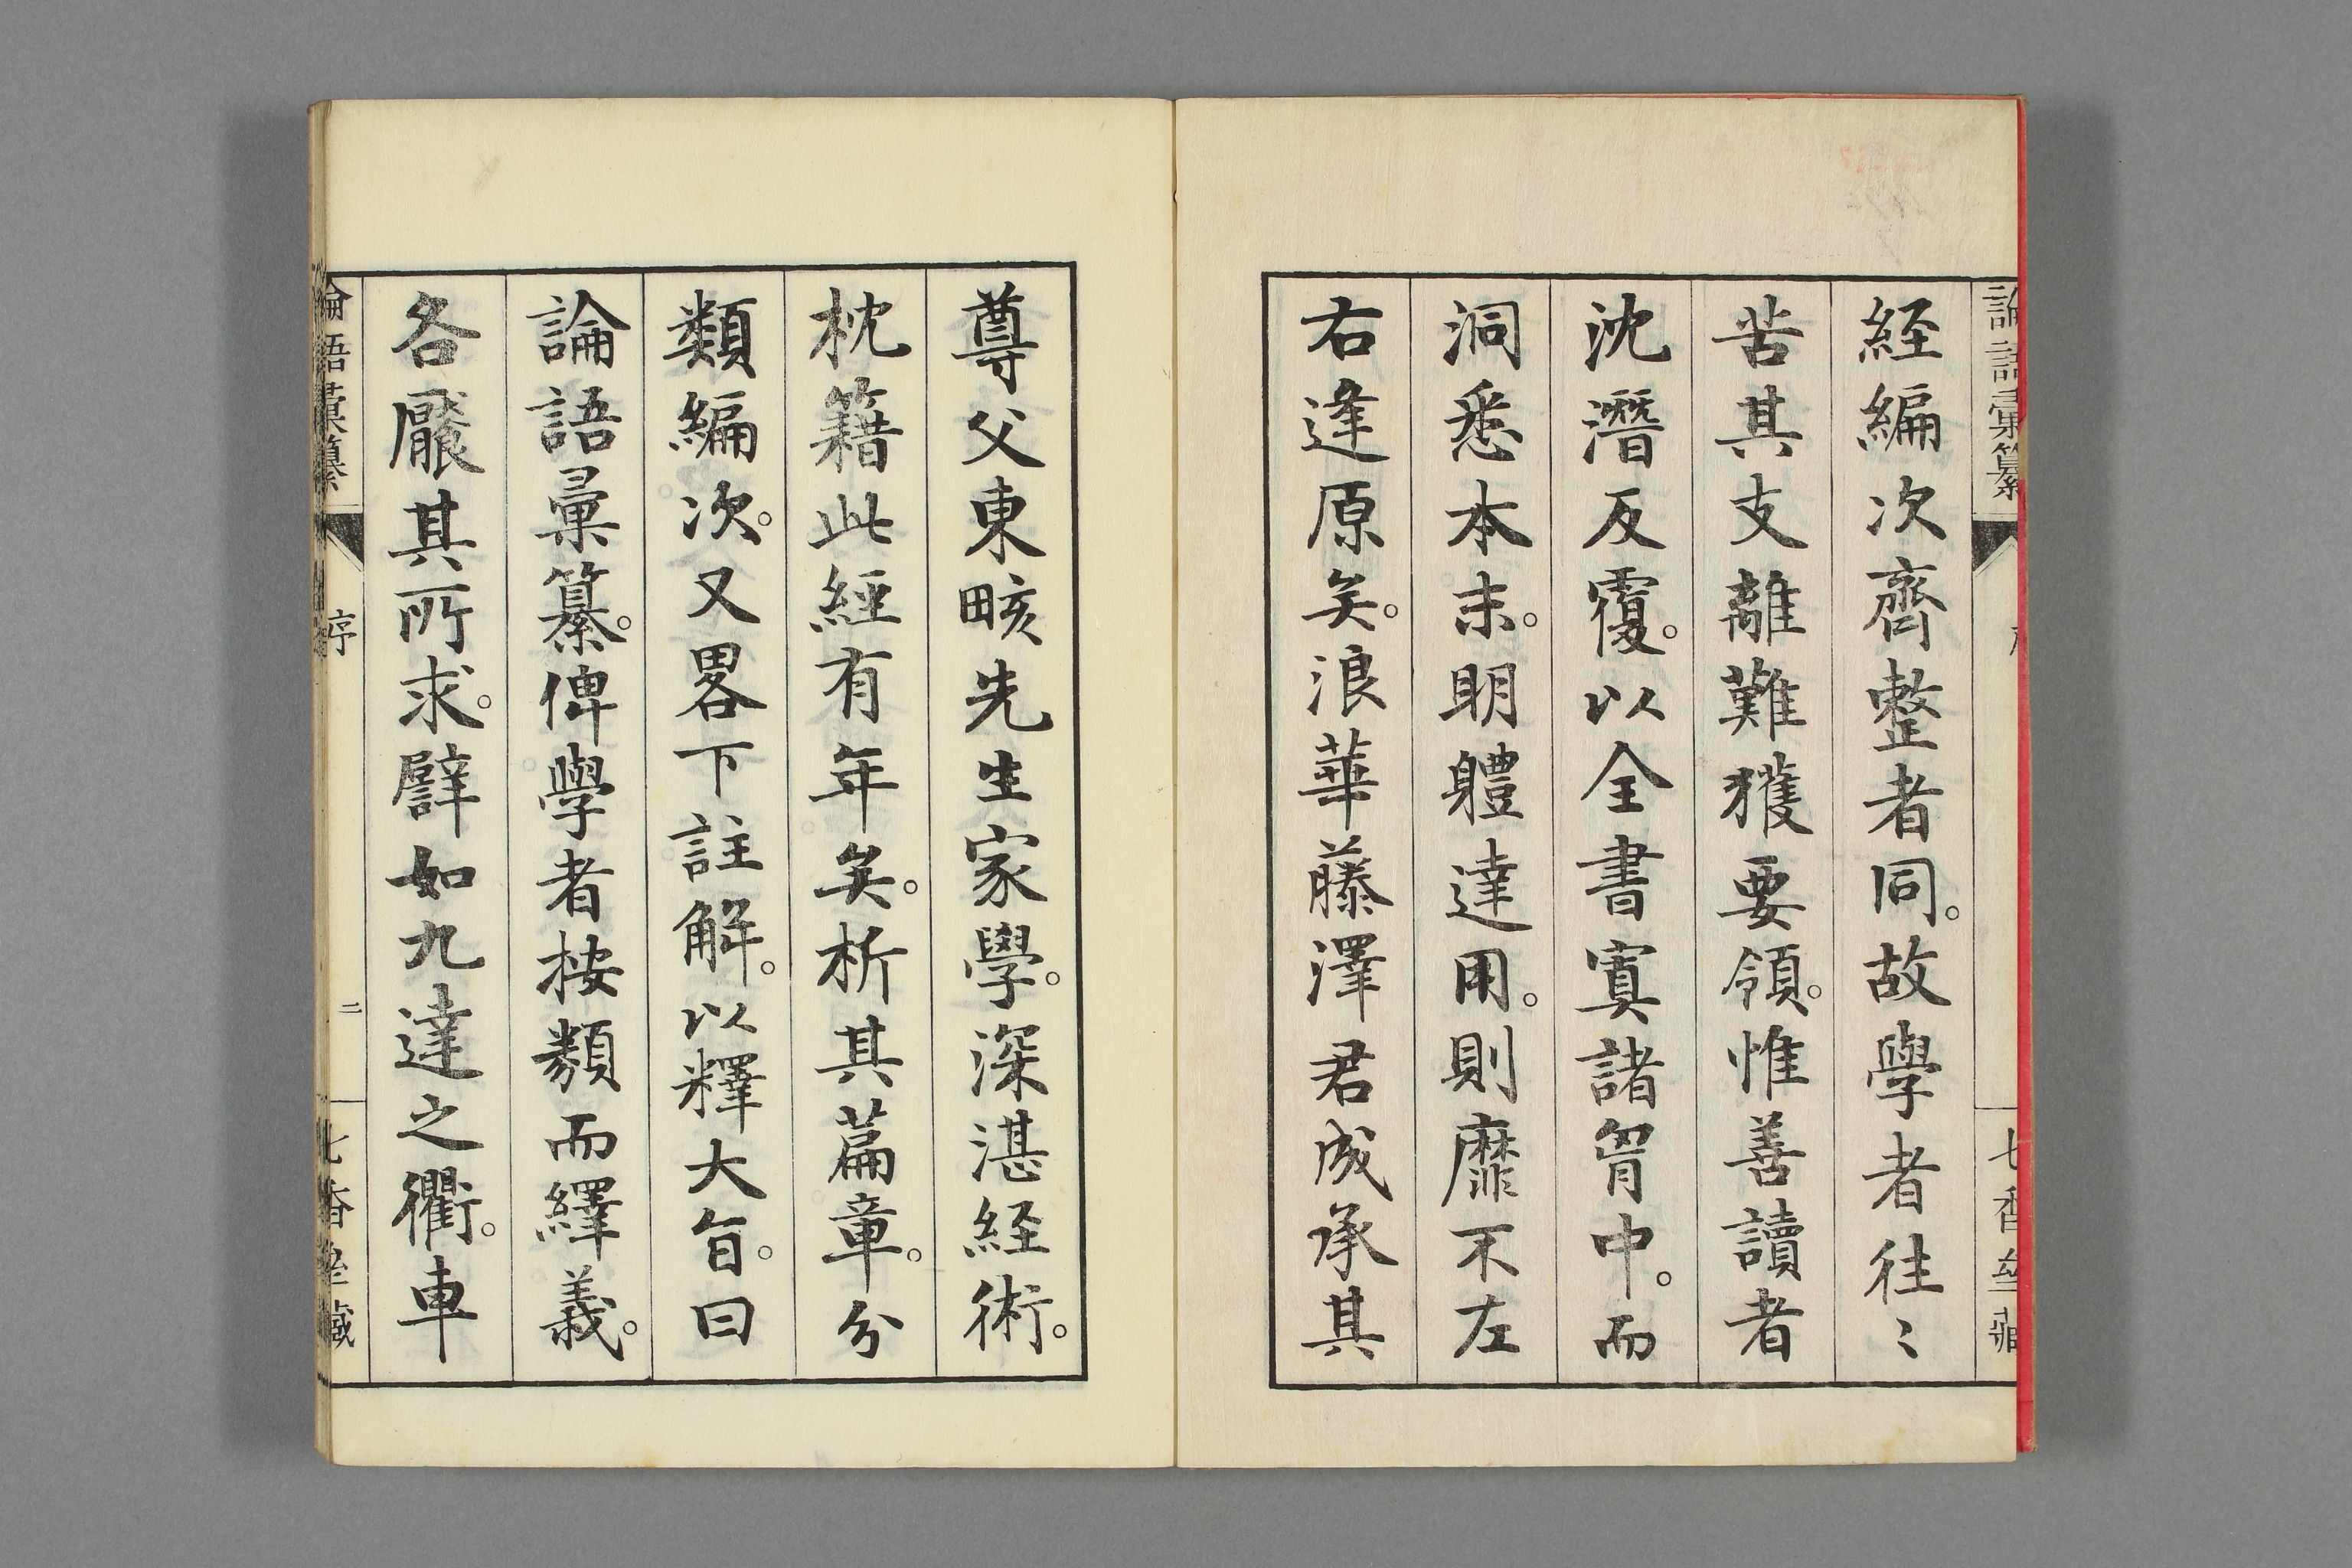 論語彙纂
七香齋藏
経編次齊整者同。故學者徃〻
苦其支離難獲要領。惟善讀者
沈潛反覆。以全書寘諸胷中。而
洞悉本末。明軆達用。則靡不左
右逢原矣。浪華藤澤君成承其
尊父東畡先生家學。深湛経術。
枕籍此經有年矣。析其篇章。分
類編次。又畧下註解。以釋大旨。曰
論語彙纂。俾學者按類而繹義。
各饜其所求。譬如九達之衢。車
論語彙纂
序
二
藏